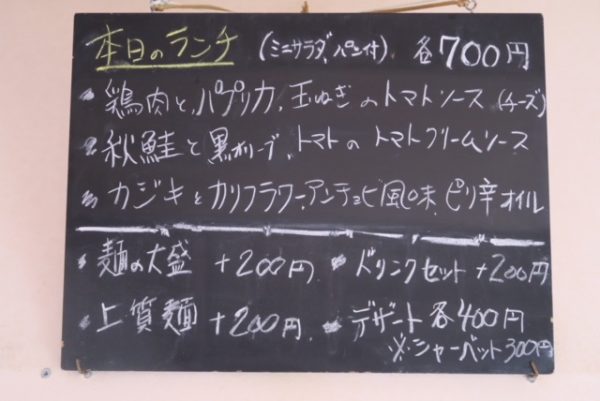 本日のランチ (ミニサラダ、パン付) 各700円
・鶏肉と、パプリカ、玉ねぎのトマトソース (チーズ)
・秋鮭と黒オリーブ、トマトのトマトクリームソース
・カジキとカリフラワー、アンチョビ風味、ピリ辛オイル
・麺の大盛 +200円 ・ドリンクセット +200円
・上質麺 +200円 ・デザート各400円
※シャーベット300円